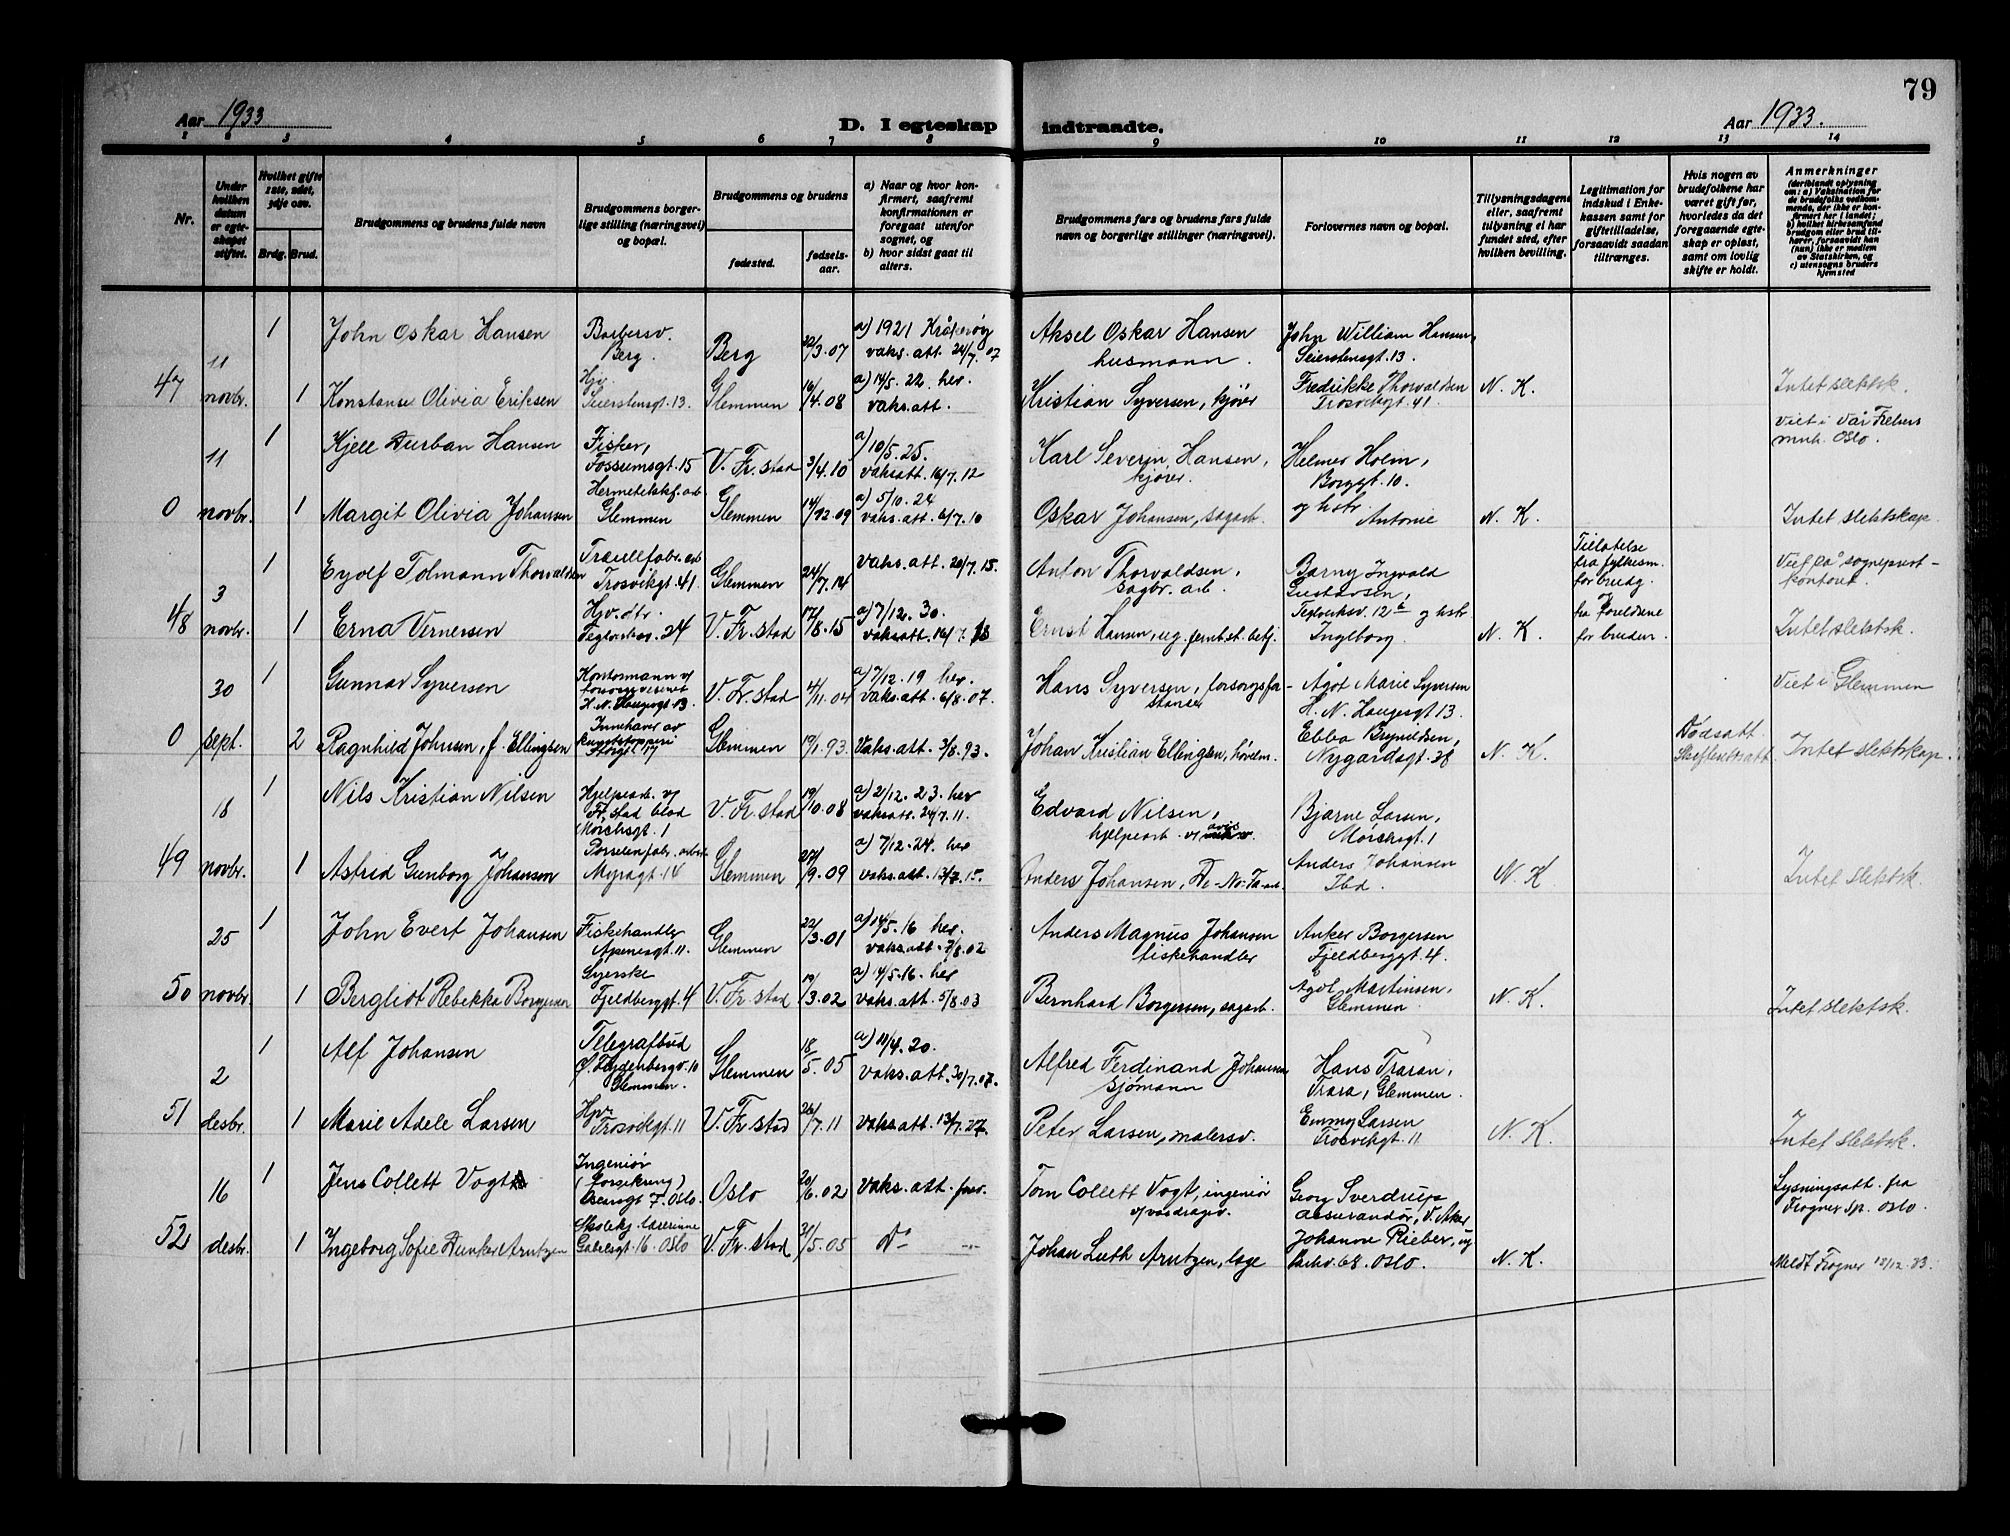 79
Aar 1933
D. I egteskap indtraadte.
Aar 1933.
1 2 3 4 5 6 7 8 9 10 11 12 13 14
Nr.
Under hvilken datum er egteskapet stiftet.
Hvilket gifte 1ste, 2det, 3dje osv.
Brdg. Brud.
Brudgommens og brudens fulde navn
Brudgommens borgerlige stilling (næringsvei) og bopæl.
Brudgommens og brudens
fødested.
fødselsaar.
a) Naar og hvor konfirmert, saafremt konfirmationen er foregaat utenfor sognet, og
b) hvor sidst gaat til alters.
Brudgommens fars og brudens fars fulde navn og borgerlige stillinger (næringsvei).
Forlovernes navn og bopæl.
Tillysningsdagene eller, saafremt tillysning ei har fundet sted, efter hvilken bevilling.
Legitimation for indskud i Enkekassen samt for giftetilladelse, forsaavidt saadan tiltrænges.
Hvis nogen av brudefolkene har været gift før, hvorledes da det foregaaende egteskap er opløst, samt om lovlig skifte er holdt.
Anmerkninger
(deriblandt oplysning om: a) Vaksination for de brudefolks vedkommende, der ikke er konfirmert her i landet; b) hvilket kirkesamfund brudgom eller brud tilhører, forsaavidt han (hun) ikke er medlem av Statskirken, og c) utensogns bruders hjemsted
47 11 novbr.
1 John Oskar Hansen
Barbersv. Berg.
Berg
22/3.07
a) 1921 Kråkerøy
vaks.att. 24/7.07
Aksel Oskar Hansen
husmann.
John William Hansen,
Seierstensgt. 13.
1 Konstanse Olivia Eriksen
Hjv.
Seierstensgt. 13.
Glemmen
16/4.08
a) 14/5. 22. her.
vaks.att.
Kristian Syversen, kjører
Fredrikke Thorvaldsen
Trosvikgt. 41.
N. K.
Intet slektsk.
0 11 novbr.
1 Kjell Durban Hansen
Fisker,
Fossumsgt. 15
V. Fr.stad
3/4.10
a) 10/5. 25.
vaksatt. 16/7. 12
Karl Severin Hansen,
kjører.
Helmer Holm,
Borggt. 10.
Viet i Vår Frelsers
mnh. Oslo.
1 Margit Olivia Johansen
Hermetikkf. arb.
Glemmen
Glemmen
14/12.09
a) 5/10. 24
vaks.att. 6/7. 10
Oskar Johansen, sagarb.
og hstr. Antonie
N. K.
Intet slektskap.
48 3 novbr.
1 Eyolf Tolmann Thorvaldsen
Træullfabr.arb.
Trosvikgt. 41
Glemmen
24/7.14
Vaks.att. 20/7. 15.
Anton Thorvaldsen,
sagbr. arb.
Barny Ingvald
Gustavsen,
Teglverksv. 12 og hstr
Tillatelse
fra fylkesm.
for brudg.
og
fra foreldrene
for bruden.
Viet på sogneprest-
kontoret.
1 Erna Vernersen
Hjv. dtr.
24
V. Fr.stad
17/8.15
a) 7/12. 30.
vaksatt. 16/7. 18
Ernst Hansen, ug. jernb.st. betj.
Ingeborg.
N. K.
Intet slektsk.
0 30 sept.
1 Gunnar Syversen
Kontormann v/
forsorgsvesenet
H. N. Haugesgt. 13
V. Fr.stad
4/11.04
a) 7/12. 19 her.
vaks.att. 6/8. 07.
Hans Syversen, forsorgsfor-
stander
Ågot Marie Syversen
H. N. Haugesgt 13.
Viet i Glemmen
2 Ragnhild Johnsen, f. Ellingsen
Innehaver av
Storgt. 17
Glemmen
19/1.93.
Vaks.att. 3/8. 93.
Johan Kristian Ellingsen,
Ebba Brynildsen,
Nygaardsgt. 28
N. K.
Dødsatt.
Skifterettsatt.
Intet slektskap.
49 18 novbr.
1 Nils Kristian Nilsen
Hjelpearb. v/
Fr.stad blad
Mørchsgt. 1
V. Fr.stad
19/10.08
a) 2/12. 23. her
vaksatt. 24/7. 11.
Edvard Nilsen,
hjelpearb. v/ avis
Bjarne Larsen,
Mørchsgt. 1
1 Astrid Gunborg Johansen
Porselenfabr. arbeid.
Myragt. 14
Glemmen
27/9.09
a) 7/12. 24. her
vaks.att. 13/7. 15.
Anders Johansen, De-No-Fa-arb.
Anders Johansen
Ibd.
N. K
Intet slektsk.
50 25 novbr.
1 John Evert Johansen
Fiskehandler
Apenesgt. 11.
Glemmen
22/3.01
a) 14/5. 16 her.
vaks.att. 7/8. 02
Anders Magnus Johansen
fiskehandler
Anker Borgersen
Fjeldberggt. 4.
1 Bergliot Rebekka Borgersen
Syerske
Fjeldberggt. 4
V. Fr.stad
19/3.02
a) 14/5. 16. her
vaks.att. 5/8. 03
Bernhard Borgersen, sagarb.
Ågot Martinsen,
Glemmen.
N. K.
Intet slektsk.
51 2 desbr.
1 Alf Johansen
Telegrafbud
10
Glemmen.
Glemmen
18/5.05
a) 11/4. 20.
vaks.att. 30/7. 07.
Alfred Ferdinand Johansen
sjømann
Hans Traran,
Trara, Glemmen.
1 Marie Adele Larsen
Hjv.
Trosvikgt. 11
V. Fr.stad
26/7.11
vaks.att. 13/7. 27.
Peter Larsen, malersv.
Emmy Larsen
Trosvikgt. 11
N. K.
Intet slektsk.
52 16 desbr.
1 Jens Collett Vogt
Ingeniør
(forsikring)
7. Oslo.
Oslo
20/6.02
Vaks. att. forev.
Tom Collett Vogt, ingeniør
v/vasdragsv.
Georg Sverdrup,
assurandør, V. Aker
Lysningsatt. fra
Frogner sp. Oslo.
1 Ingeborg Sofie Dunker Arntzen
Skolekj. lærerinne
Gabelsgt. 16. Oslo
V. Fr. stad
31/5.05
do —"—
Johan Luth Arntzen, læge
Johanne Rieber,
Parkv. 68. Oslo.
N. K.
Meldt Frogner 18/12. 33.